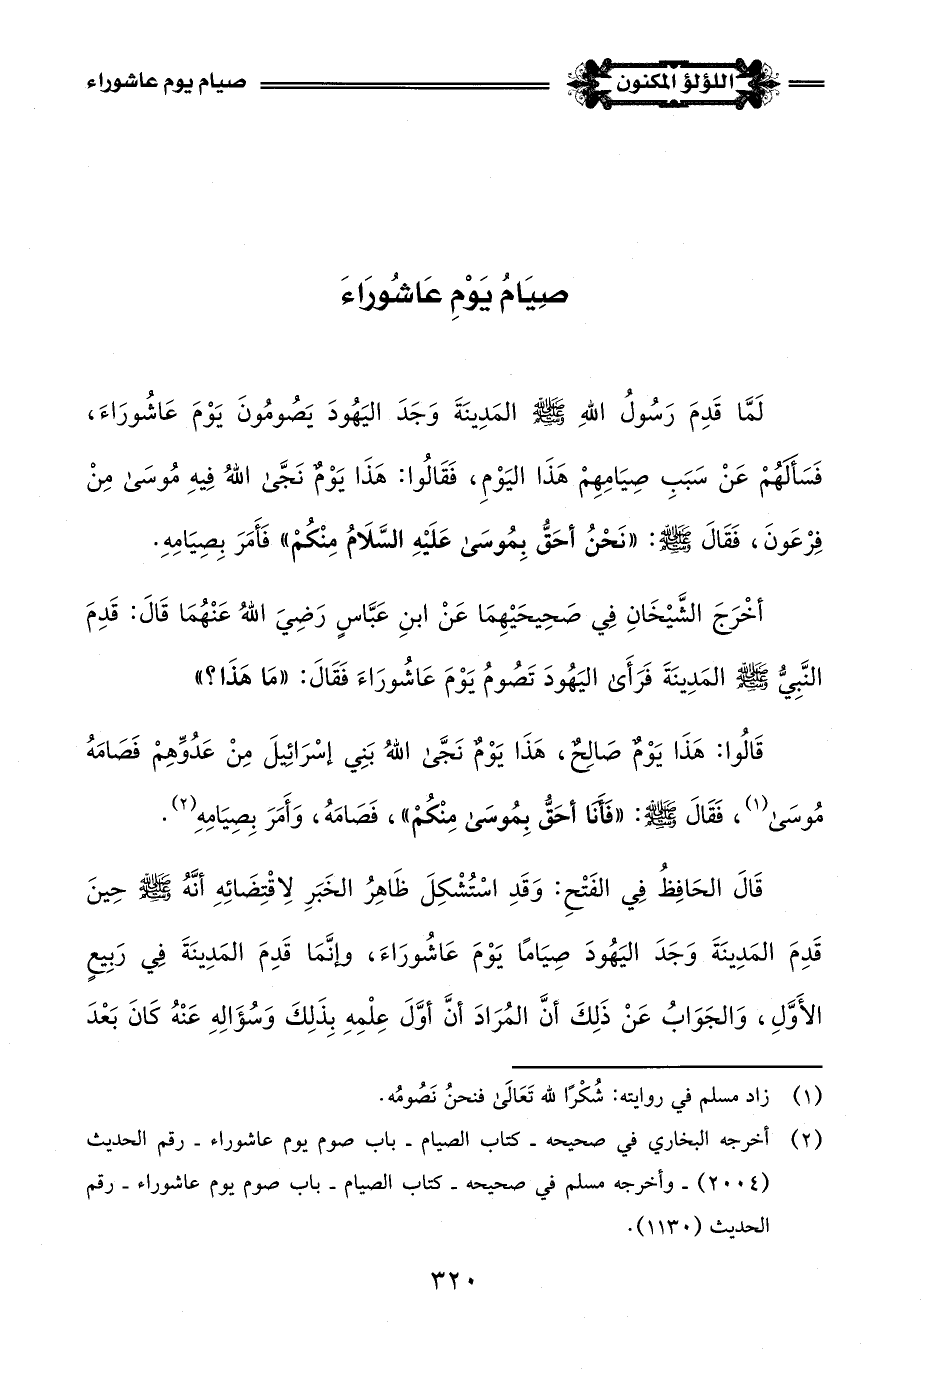 اللؤلؤ المكنون صيام يوم عاشوراء
صِيَامُ يَوْمِ عَاشُورَاءَ
لَمَّا قَدِمَ رَسُولُ اللهِ ﷺ المَدِينَةَ وَجَدَ اليَهُودَ يَصُومُونَ يَوْمَ عَاشُورَاءَ،
فَسَأَلَهُمْ عَنْ سَبَبِ صِيَامِهِمْ هَذَا اليَوْمِ، فَقَالُوا: هَذَا يَوْمٌ نَجَّىٰ اللهُ فِيهِ مُوسَىٰ مِنْ
فِرْعَونَ، فَقَالَ ﷺ: «نَحْنُ أحَقُّ بِمُوسَىٰ عَلَيْهِ السَّلَامُ مِنْكُمْ» فَأَمَرَ بِصِيَامِهِ.
أخْرَجَ الشَّيْخَانِ فِي صَحِيحَيْهِمَا عَنْ ابنِ عَبَّاسٍ رَضِيَ اللهُ عَنْهُمَا قَالَ: قَدِمَ
النَّبِيُّ ﷺ المَدِينَةَ فَرَأَىٰ اليَهُودَ تَصُومُ يَوْمَ عَاشُورَاءَ فَقَالَ: «مَا هَذَا؟»
قَالُوا: هَذَا يَوْمٌ صَالِحٌ، هَذَا يَوْمٌ نَجَّىٰ اللهُ بَنِي إسْرَائِيلَ مِنْ عَدُوِّهِمْ فَصَامَهُ
مُوسَىٰ(١)، فَقَالَ ﷺ: «فَأَنَا أحَقُّ بِمُوسَىٰ مِنْكُمْ»، فَصَامَهُ، وَأَمَرَ بِصِيَامِهِ(٢).
قَالَ الحَافِظُ فِي الفَتْحِ: وَقَدِ اسْتُشْكِلَ ظَاهِرُ الخَبَرِ لِاقْتِضَائِهِ أنَّهُ ﷺ حِينَ
قَدِمَ المَدِينَةَ وَجَدَ اليَهُودَ صِيَامًا يَوْمَ عَاشُورَاءَ، وإنَّمَا قَدِمَ المَدِينَةَ فِي رَبِيعٍ
الأَوَّلِ، وَالجَوَابُ عَنْ ذَلِكَ أنَّ المُرَادَ أنَّ أوَّلَ عِلْمِهِ بِذَلِكَ وَسُؤَالِهِ عَنْهُ كَانَ بَعْدَ
(١) زاد مسلم في روايته: شُكْرًا لله تَعَالَىٰ فنحنُ نَصُومُه.
(٢) أخرجه البخاري في صحيحه - كتاب الصيام - باب صوم يوم عاشوراء - رقم الحديث
(٢٠٠٤) - وأخرجه مسلم في صحيحه - كتاب الصيام - باب صوم يوم عاشوراء - رقم
الحديث (١١٣٠).
٣٢٠